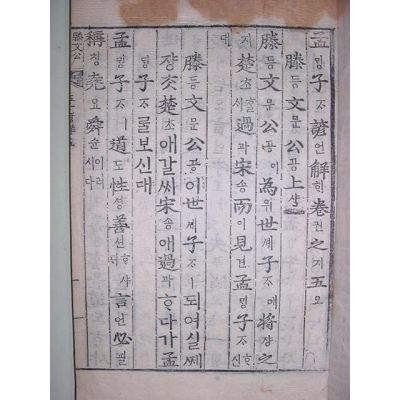 孟밍子ᄌᆞ諺언解ᄒᆡ卷권之지五오
滕등文문公공上샹
滕등文문公공이爲위世셰子ᄌᆞ애將쟝之
지楚초ᄒᆞᆯᄉᆡ過과宋송而이見견孟밍子ᄌᆞᄒᆞ신
대
滕등文문公공이世셰子ᄌᆞㅣ되여실ᄶᅦ
쟝ᄎᆞᆺ楚초애갈ᄊᆡ宋송애過과ᄒᆞ다가孟
밍子ᄌᆞᄅᆞᆯ보신대
孟밍子ᄌᆞㅣ道도性셩善션ᄒᆞ샤ᄃᆡ言언必필
稱칭堯요舜슌이러시다
滕文公